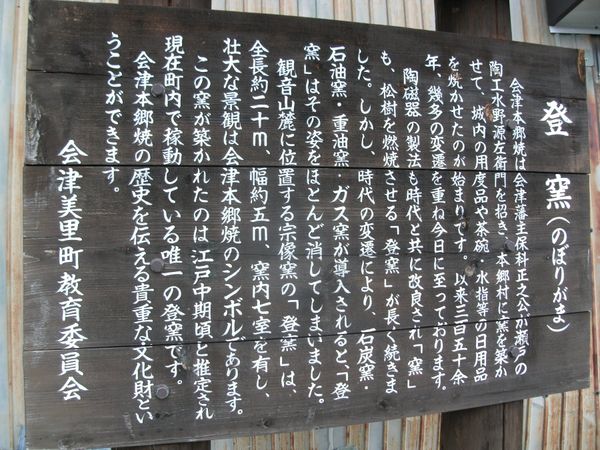 登窯(のぼりがま)
会津本郷焼は会津藩主保科正之公が瀬戸の
陶工水野源左衛門を招き、本郷村に窯を築か
せて、城内の用度品や茶碗、水指等の日用品
を焼かせたのが始まりです。以来三百五十余
年、幾多の変遷を重ね今日に至っております。
陶磁器の製法も時代と共に改良され「窯」
も、松樹を燃焼させる「登窯」が長く続きま
した。しかし、時代の変遷により、石炭窯・
石油窯・重油窯・ガス窯が導入されると「登
窯」はその姿をほとんど消してしまいました。
観音山麓に位置する宗像窯の「登窯」は、
全長約二十m、幅約五m、窯内七室を有し、
壮大な景観は会津本郷焼のシンボルであります。
この窯が築かれたのは江戸中期頃と推定され
現在町内で稼動している唯一の登窯です。
会津本郷焼の歴史を伝える貴重な文化財とい
うことができます。
会津美里町教育委員会